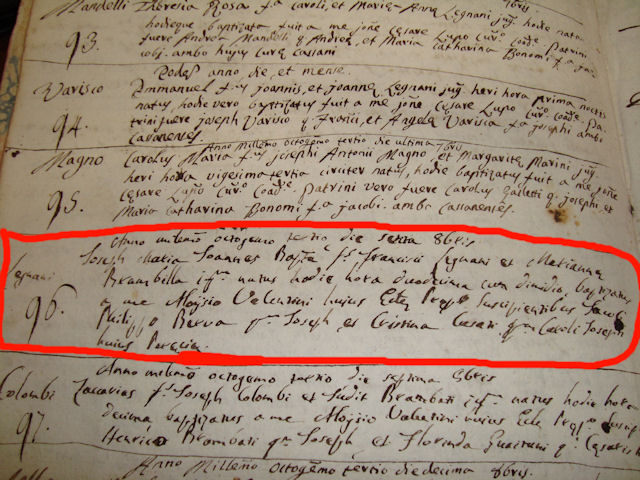 Mandelli Theresia Rosa f.a Caroli, et Maria Anna Legnani jug. hodie nata
hodieque baptizata fuit a me joñe Cesare Lupo Cur.o Coad.e Patrini
93. fuere Andrea Mandelli q. Andrea, et Maria Catharina Bonomi f.a jacobi
ambo hujus Curæ Cassani
anno die, et mense.
Varisco Emmanuel f.us joannis, et joanna Legnani jug. heri hora prima noctis
natus, hodie vero baptizatus fuit a me joñe Cesare Lupo Cur.o Coad.e Patrini
94. fuere joseph Varisco q. et Angela Varisca f.a josephi ambo
Cassanenses
Anno Milleno octogemo tertio die ultima 7bris
Magno Carolus Maria f.us josephi Antonii Magno, et Margarita Marini jug.
heri hora vigesima tertia circiter natus, hodie baptizatus fuit a me joñe
Cesare Lupo Cur.o Coad.e Patrini vero fuere Carolus q. joseph, et
95. Maria Catharina Bonomi f.a jacobi. ambo Cassanenses.
Anno mileno octogemo tertio die sexta 8bris
Legnani Joseph Maria Joannes Bapta f.s Francisci Legnani et Marianna
Brambilla natus hodie hora duodecima cum dimidio, baptizatus
96. a me Aloysio Valentini huius suscipientibus Jacobo
Philippo Berva q.m Joseph et Cristina Casari q.m Caroli Joseph
huius
Anno mileno octogemo tertio die septima 8bris
Colombi Zaccarias f.s Joseph Colombi et Judit Brambati natus hodie hora
decima baptizatus a me Aloysio Valentini huius
97. Henrico Brambati q.m Joseph et Florinda q.m Cesaris
Anno Milleño octogemo tertio die decima 8bris.